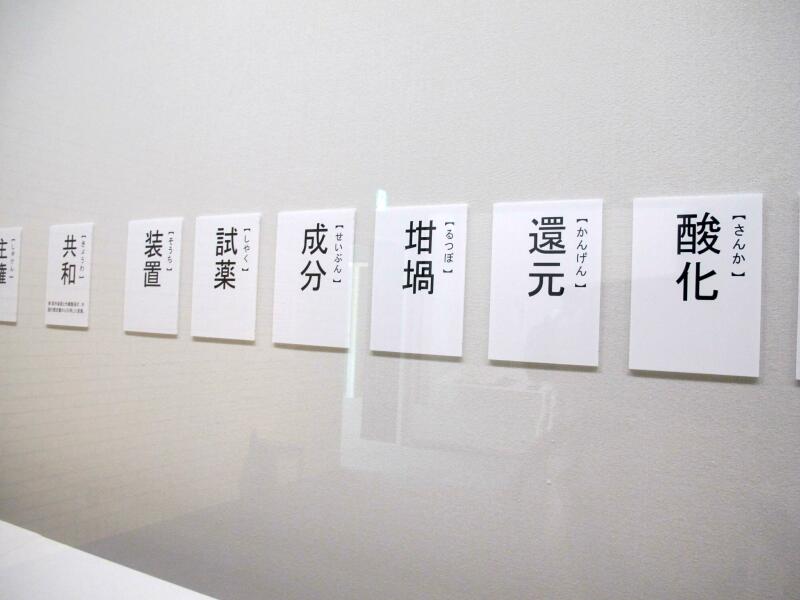 酸化
【さんか】
還元
【かんげん】
坩堝
【るつぼ】
成分
【せいぶん】
試薬
【しやく】
装置
【そうち】
共和
【きょうわ】
主権
【しゅけん】